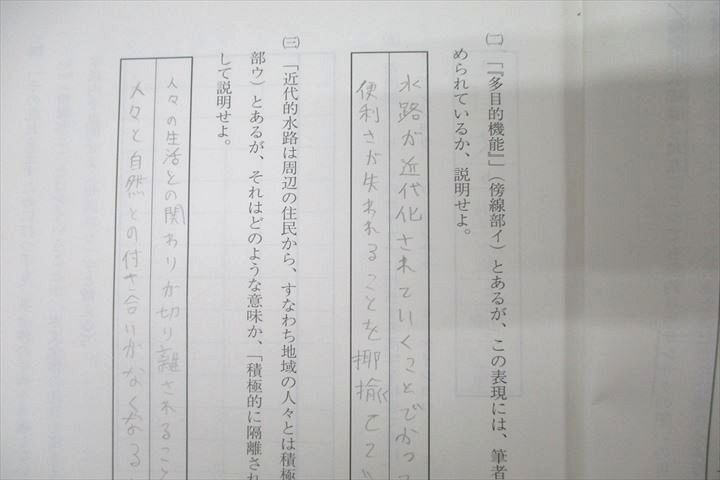 ㈡　「『多目的機能』」（傍線部イ）とあるが、この表現には、筆者
められているか、説明せよ。
水路が近代化されていくことでかつて
便利さが失われることを揶揄して
㈢　「近代的水路は周辺の住民から、すなわち地域の人々とは積極
部ウ）とあるが、それはどのような意味か、「積極的に隔離され
して説明せよ。
人々の生活との関わりが切り離されること
人々と自然との付き合いがなくなる